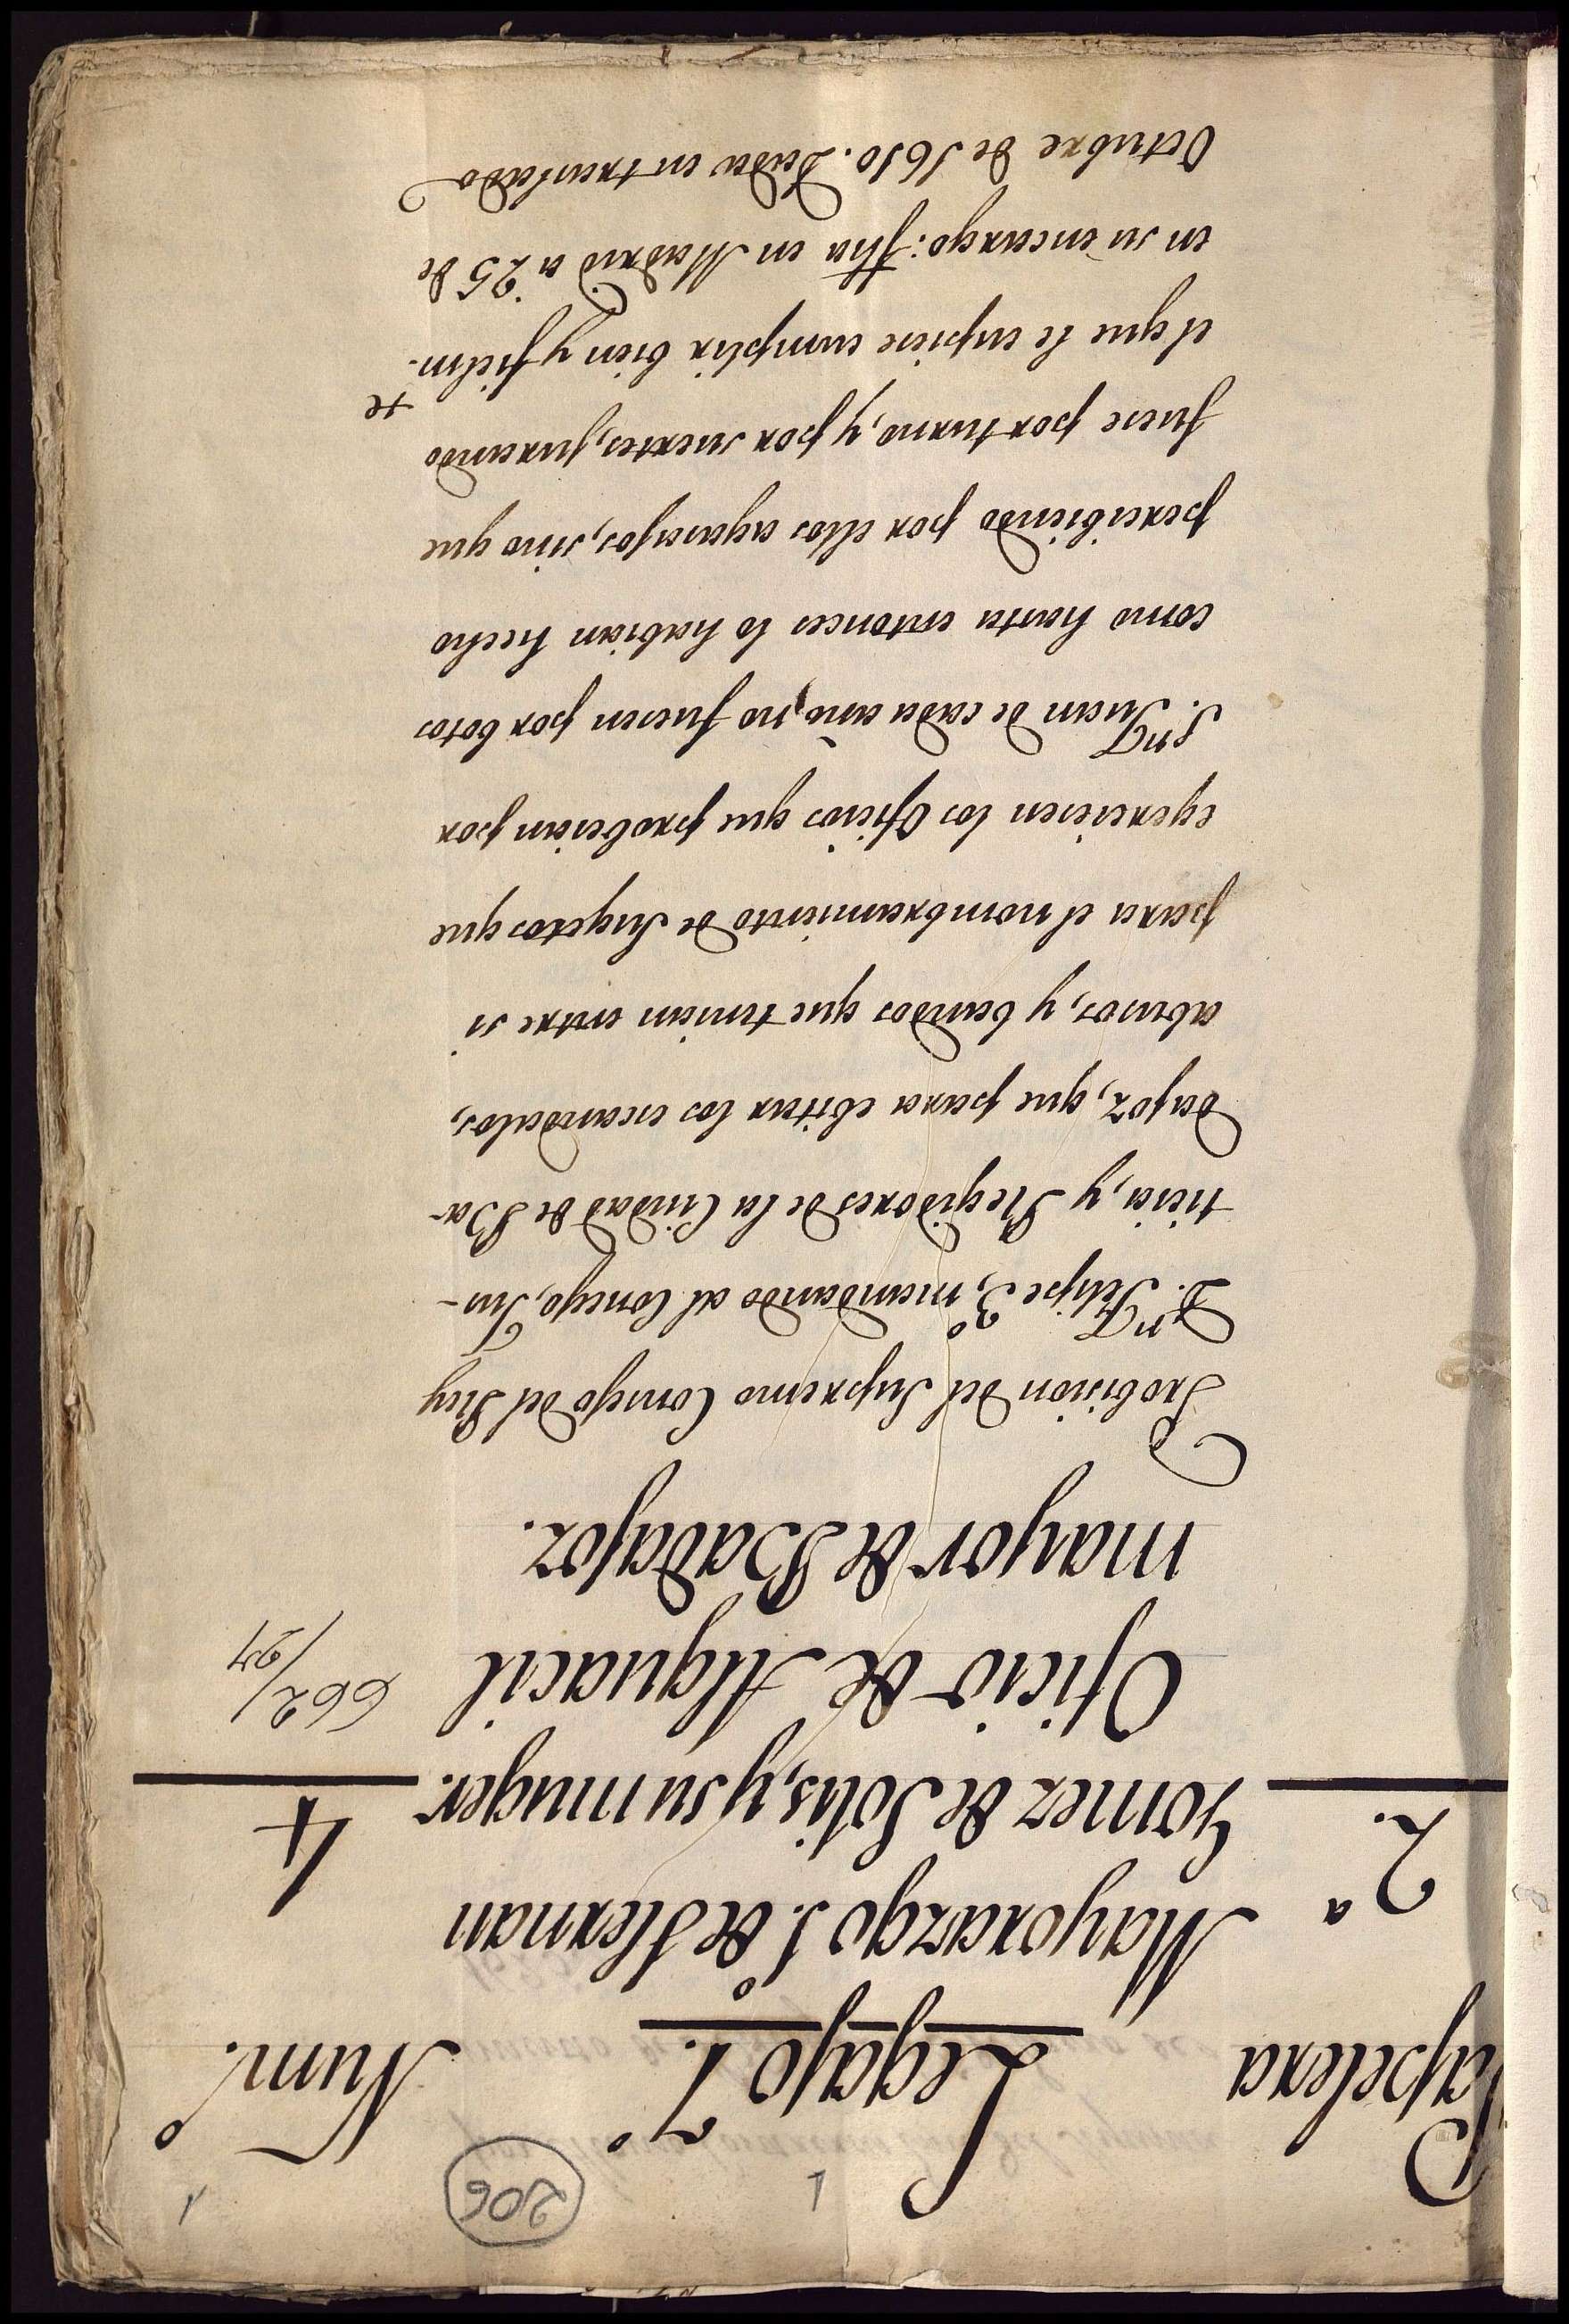 1
206
1
Papelera
Legajo 7.º
Num.º
2.ª
Mayorazgo 1.º de Hernan
4
2.
Gomez de Solis, y su muger.
662/
27
Oficio de Alguacil
mayor de Badajoz.
Probision del Supremo Consejo del Rey
D.ⁿ Felipe 3.º, mandando al Consejo, Jus-
ticia, y Regidores de la Ciudad de Ba-
dajoz, que para ebitar los escandalos,
abusos, y bandos que tenian entre si
para el nombramiento de Sugetos que
egerciesen los Oficios que probeian por
S.ⁿ Juan de cada año, no fuesen por botos
como hasta entonces lo habian hecho
percibiendo por ellos agasajos, sino que
fuese por turno, y por suertes, jurando
el que le cupiese cumplir bien y fielm.te
en su encargo: fha en Madrid a 25 de
Octubre de 1610. Dada en traslado